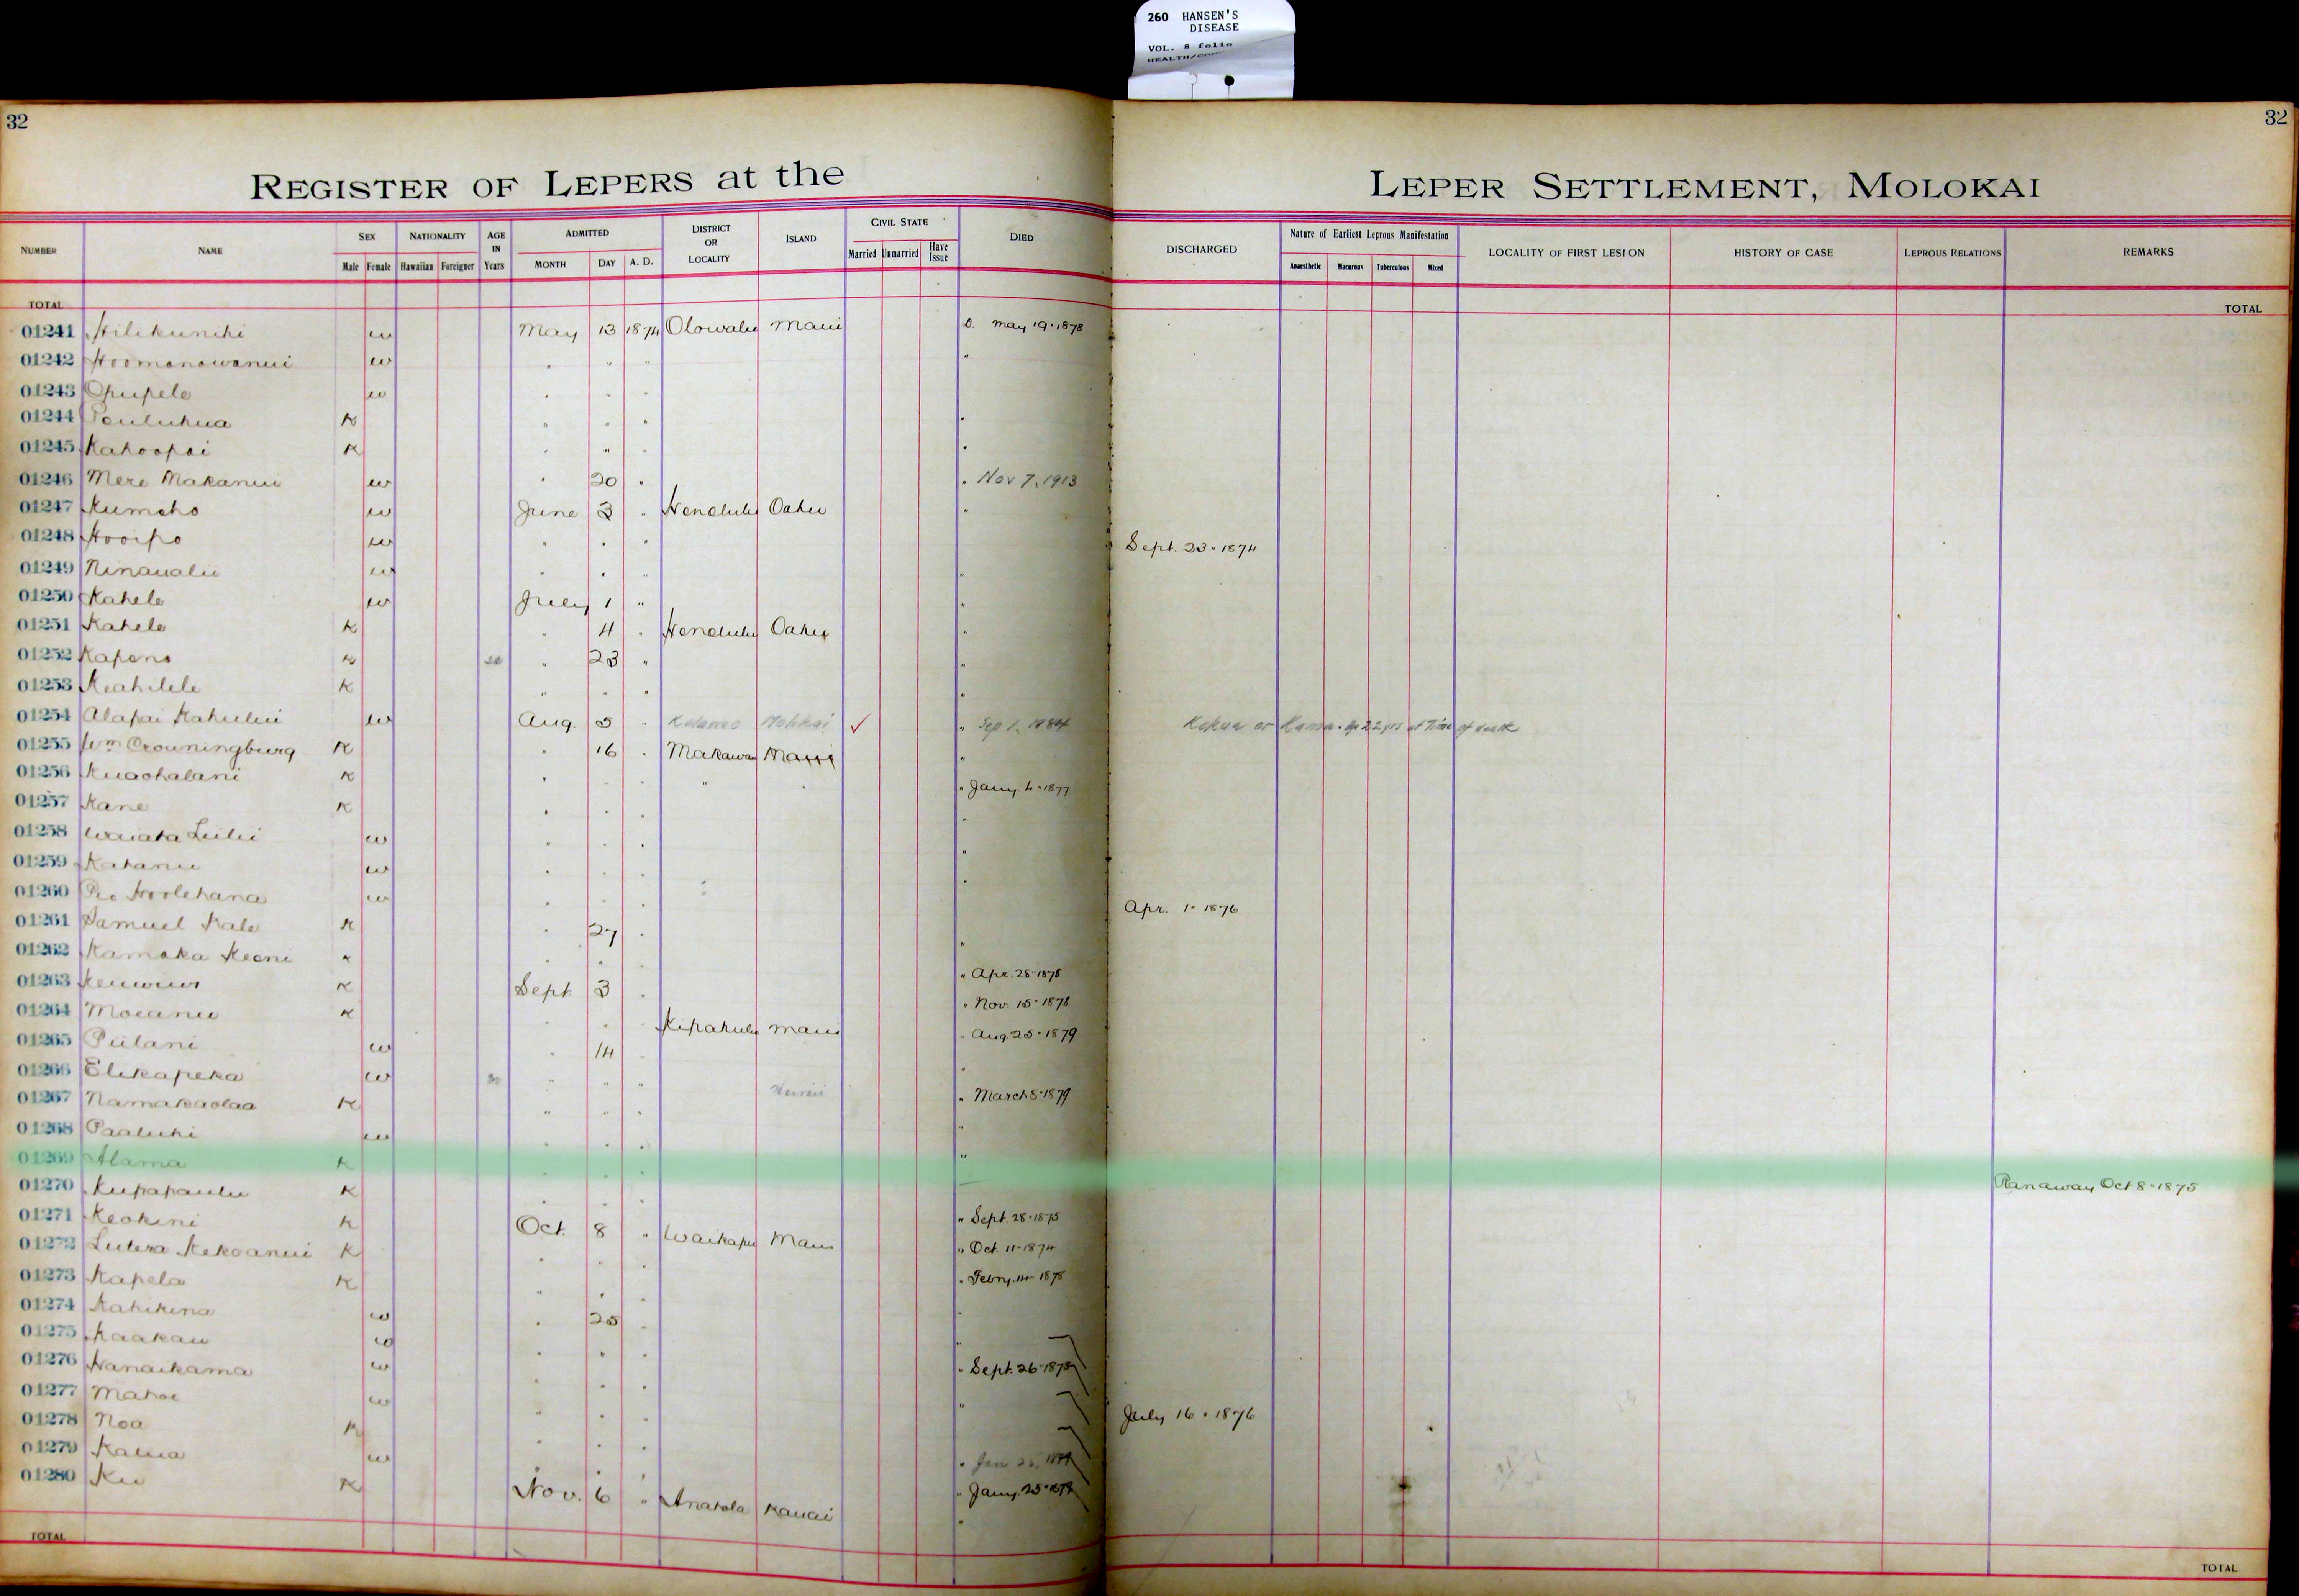 260 HANSEN'S
DISEASE
VOL. 8 folio
32
32
REGISTER OF LEPERS at the LEPER SETTLEMENT, MOLOKAI
NUMBER NAME SEX NATIONALITY AGE IN Years ADMITTED DISTRICT OR LOCALITY ISLAND CIVIL STATE DIED DISCHARGED Nature of Earliest Leprous Manifestation LOCALITY OF FIRST LESION HISTORY OF CASE LEPROUS RELATIONS REMARKS
Male Female Hawaiian Foreigner MONTH DAY A. D. Married Unmarried Have Issue Anaesthetic Macurous Tuberculous Mixed
TOTAL TOTAL
01241 Hilikunihi w May 13 1874 Olowalu Maui D. May 19 · 1878
01242 Hoomanawanui w " " " "
01243 Opupele w " " "
01244 K " " " "
01245 Kahoopai K " " " "
01246 Mere Makanui w " 20 " " Nov 7, 1913
01247 Kumeho w June 3 " Honolulu Oahu "
01248 Hooipo w " " " Sept. 23 · 1874
01249 Ninaualii w " " " "
01250 Kahele w July 1 " "
01251 Kahele K " 4 " Honolulu Oahu "
01252 Kapena K " 23 " "
01253 Keahilele K " " " "
01254 Alapai Kahului w Aug. 5 " Kalawao Molokai ✓ " Sep 1, 1884 Kokua or Kamaa. Age 22 yrs at Time of death
01255 Wm Crowningburg K " 16 " Makawao Maui "
01256 Kuaohalani K " " " " " " Jany. 4 · 1877
01257 Kane K " " " "
01258 Waiaka Luilii w " " " "
01259 Kahanu w " " " "
01260 Hoolehana w " " " Apr. 1 · 1876
01261 Samuel Kale K " 27 " "
01262 Kamaka Keoni K " " " " Apr. 28 · 1878
01263 K Sept 3 " " Nov. 15 · 1878
01264 Moeanu K " " " Kipahulu Maui " Aug 25 · 1879
01265 Piilani w " 14 " "
01266 Elikapeka w 30 " " " Hawaii " March 5 · 1879
01267 Namakaolaa K " " " "
01268 Paaluhi w " " " "
01269 Alama K " " "
01270 Kupapaulu K " " " " Sept. 28 · 1875 Ranaway Oct 8 · 1875
01271 Keokini K Oct. 8 " Waikapu Maui " Oct. 11 · 1874
01272 Lutera Kekoanui K " " " " Febry. 14 1878
01273 Kapela K " " " "
01274 Kahikina w " 25 " "
01275 Kaakau w " " " " Sept. 26 · 1878
01276 Nanaikama w " " " "
01277 Mahoe w " " " July 16 · 1876
01278 Noa K " " "
01279 Kalua w " " "
01280 Ku K Nov. 6 " Anahola Kauai "
TOTAL TOTAL